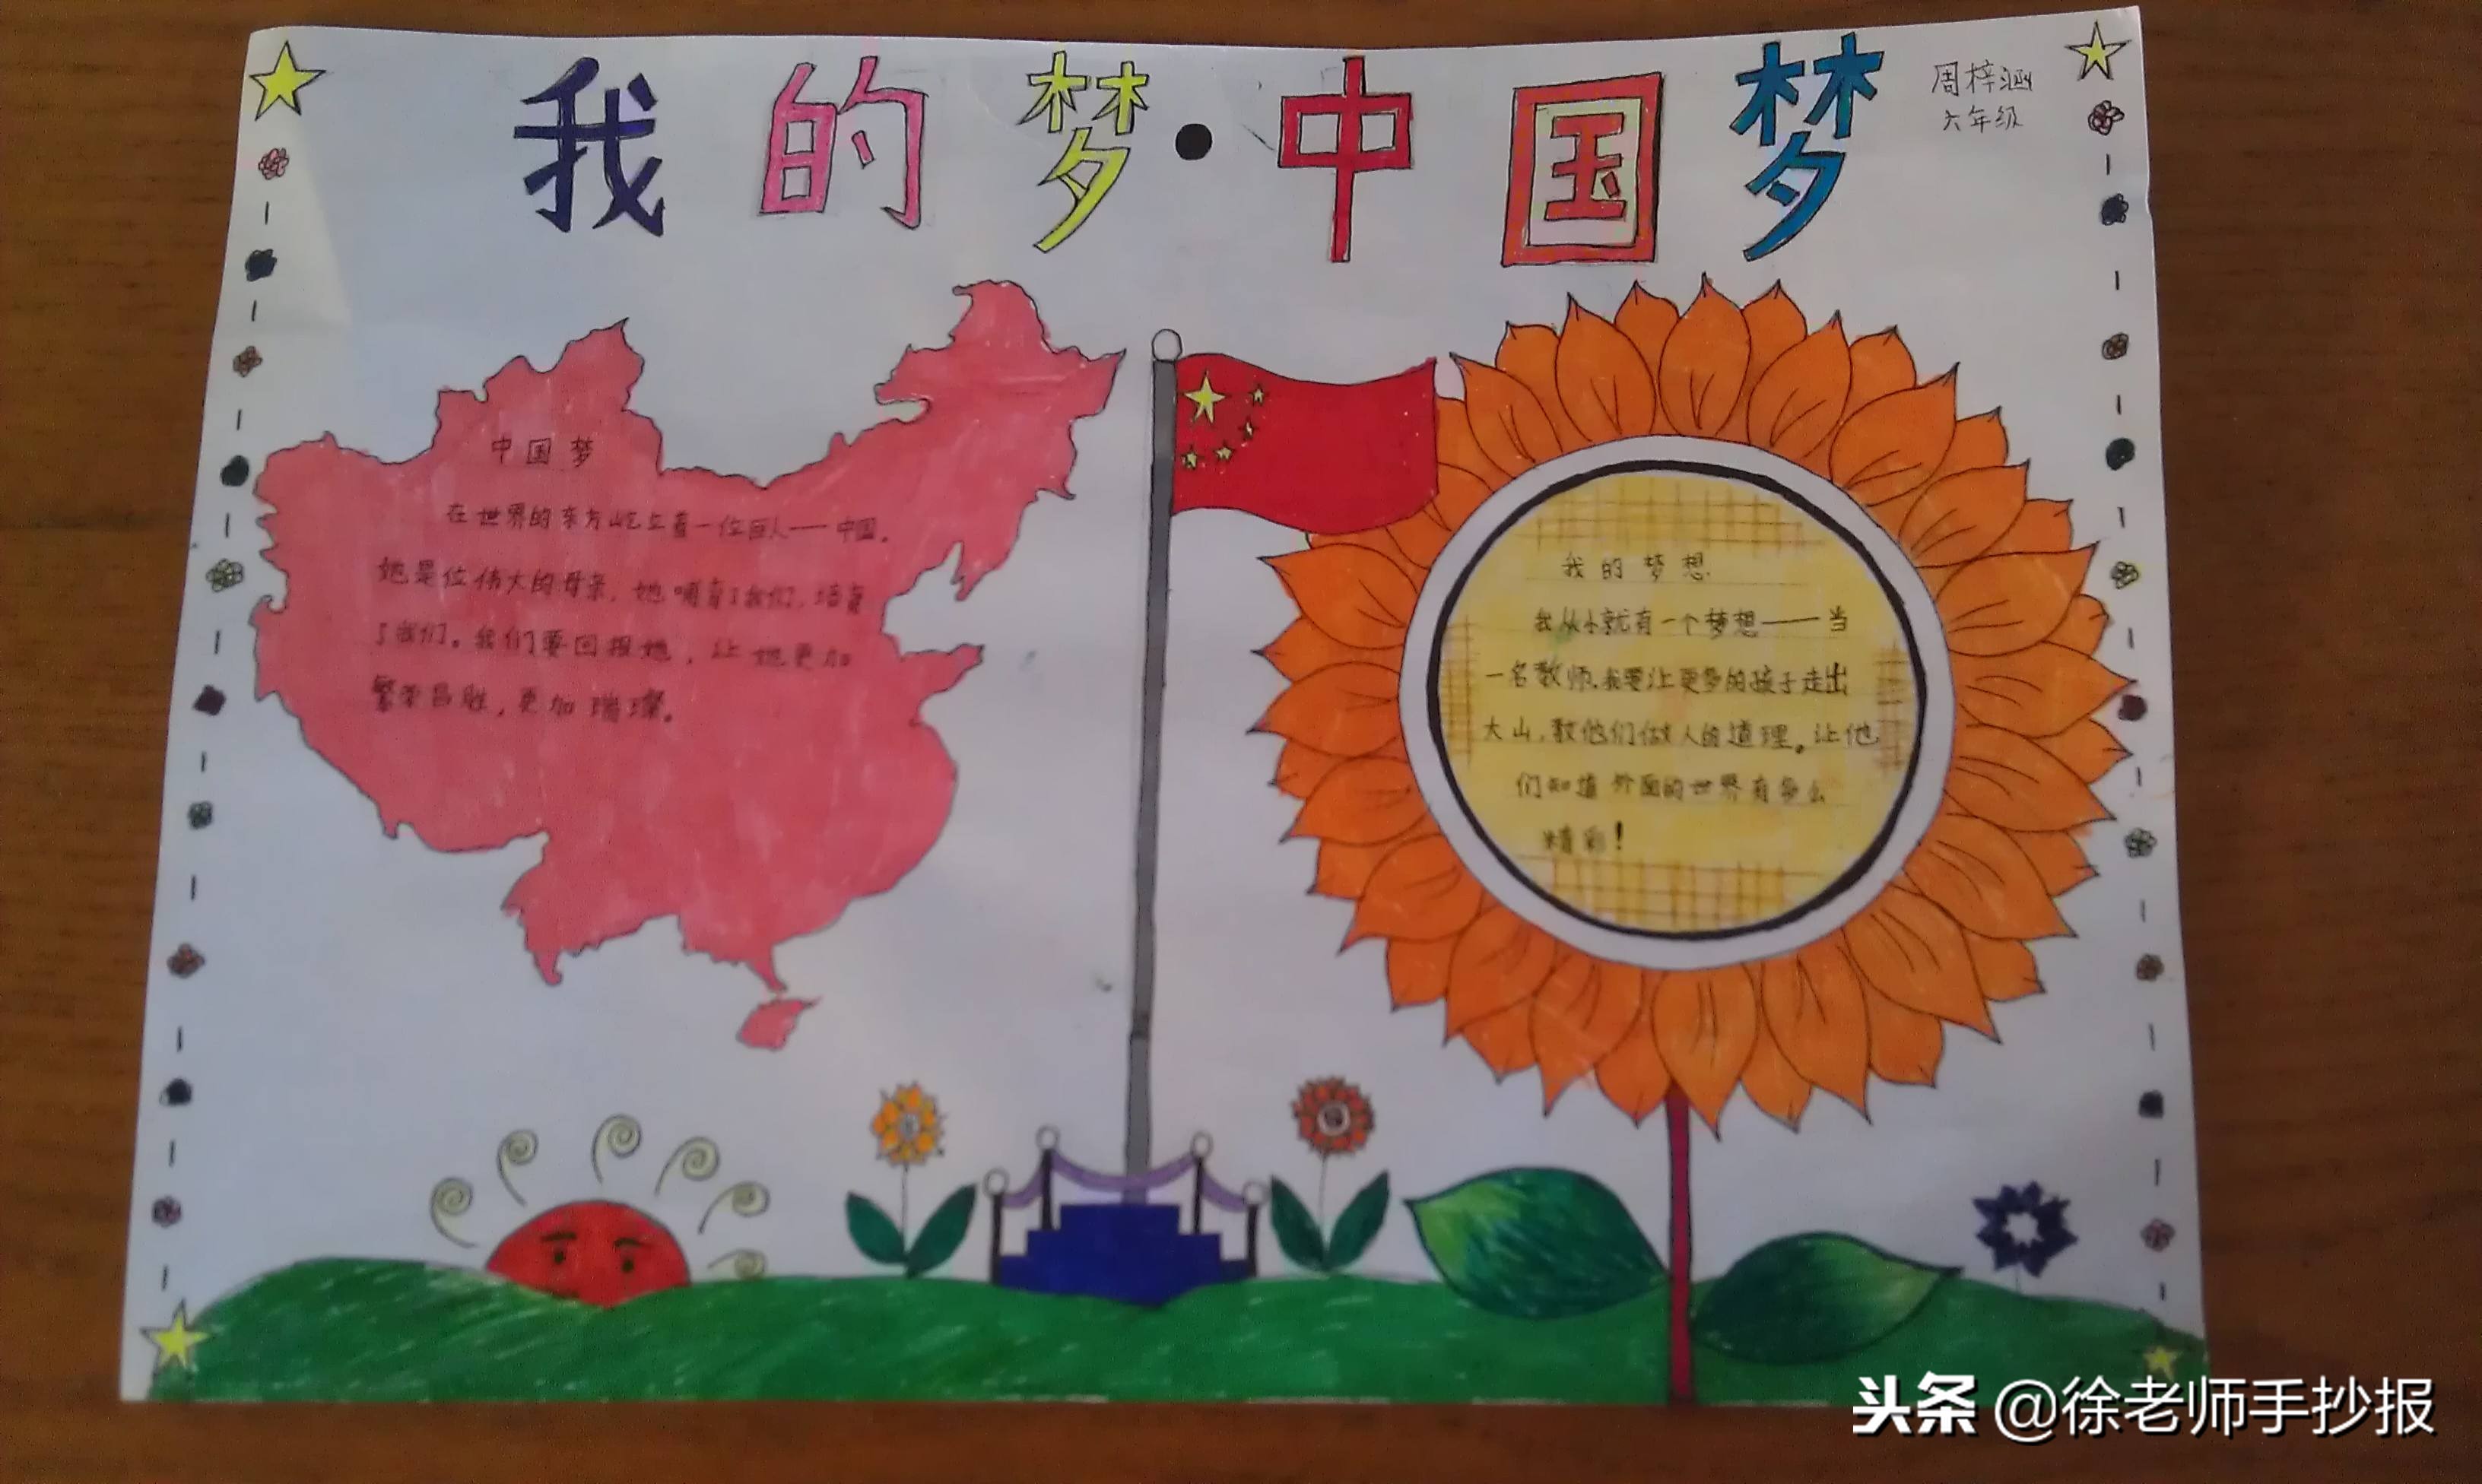 我的梦·中国梦
周梓涵
六年级
中国梦
在世界的东方屹立着一位巨人——中国。
她是位伟大的母亲，她哺育了我们，培育
了我们。我们要回报她，让她更加
繁荣昌胜，更加瑞璨。
我的梦想
我从小就有一个梦想——当
一名教师。我要让更多的孩子走出
大山，教他们做人的道理。让他
们知道外面的世界有多么
精彩！
头条 @徐老师手抄报